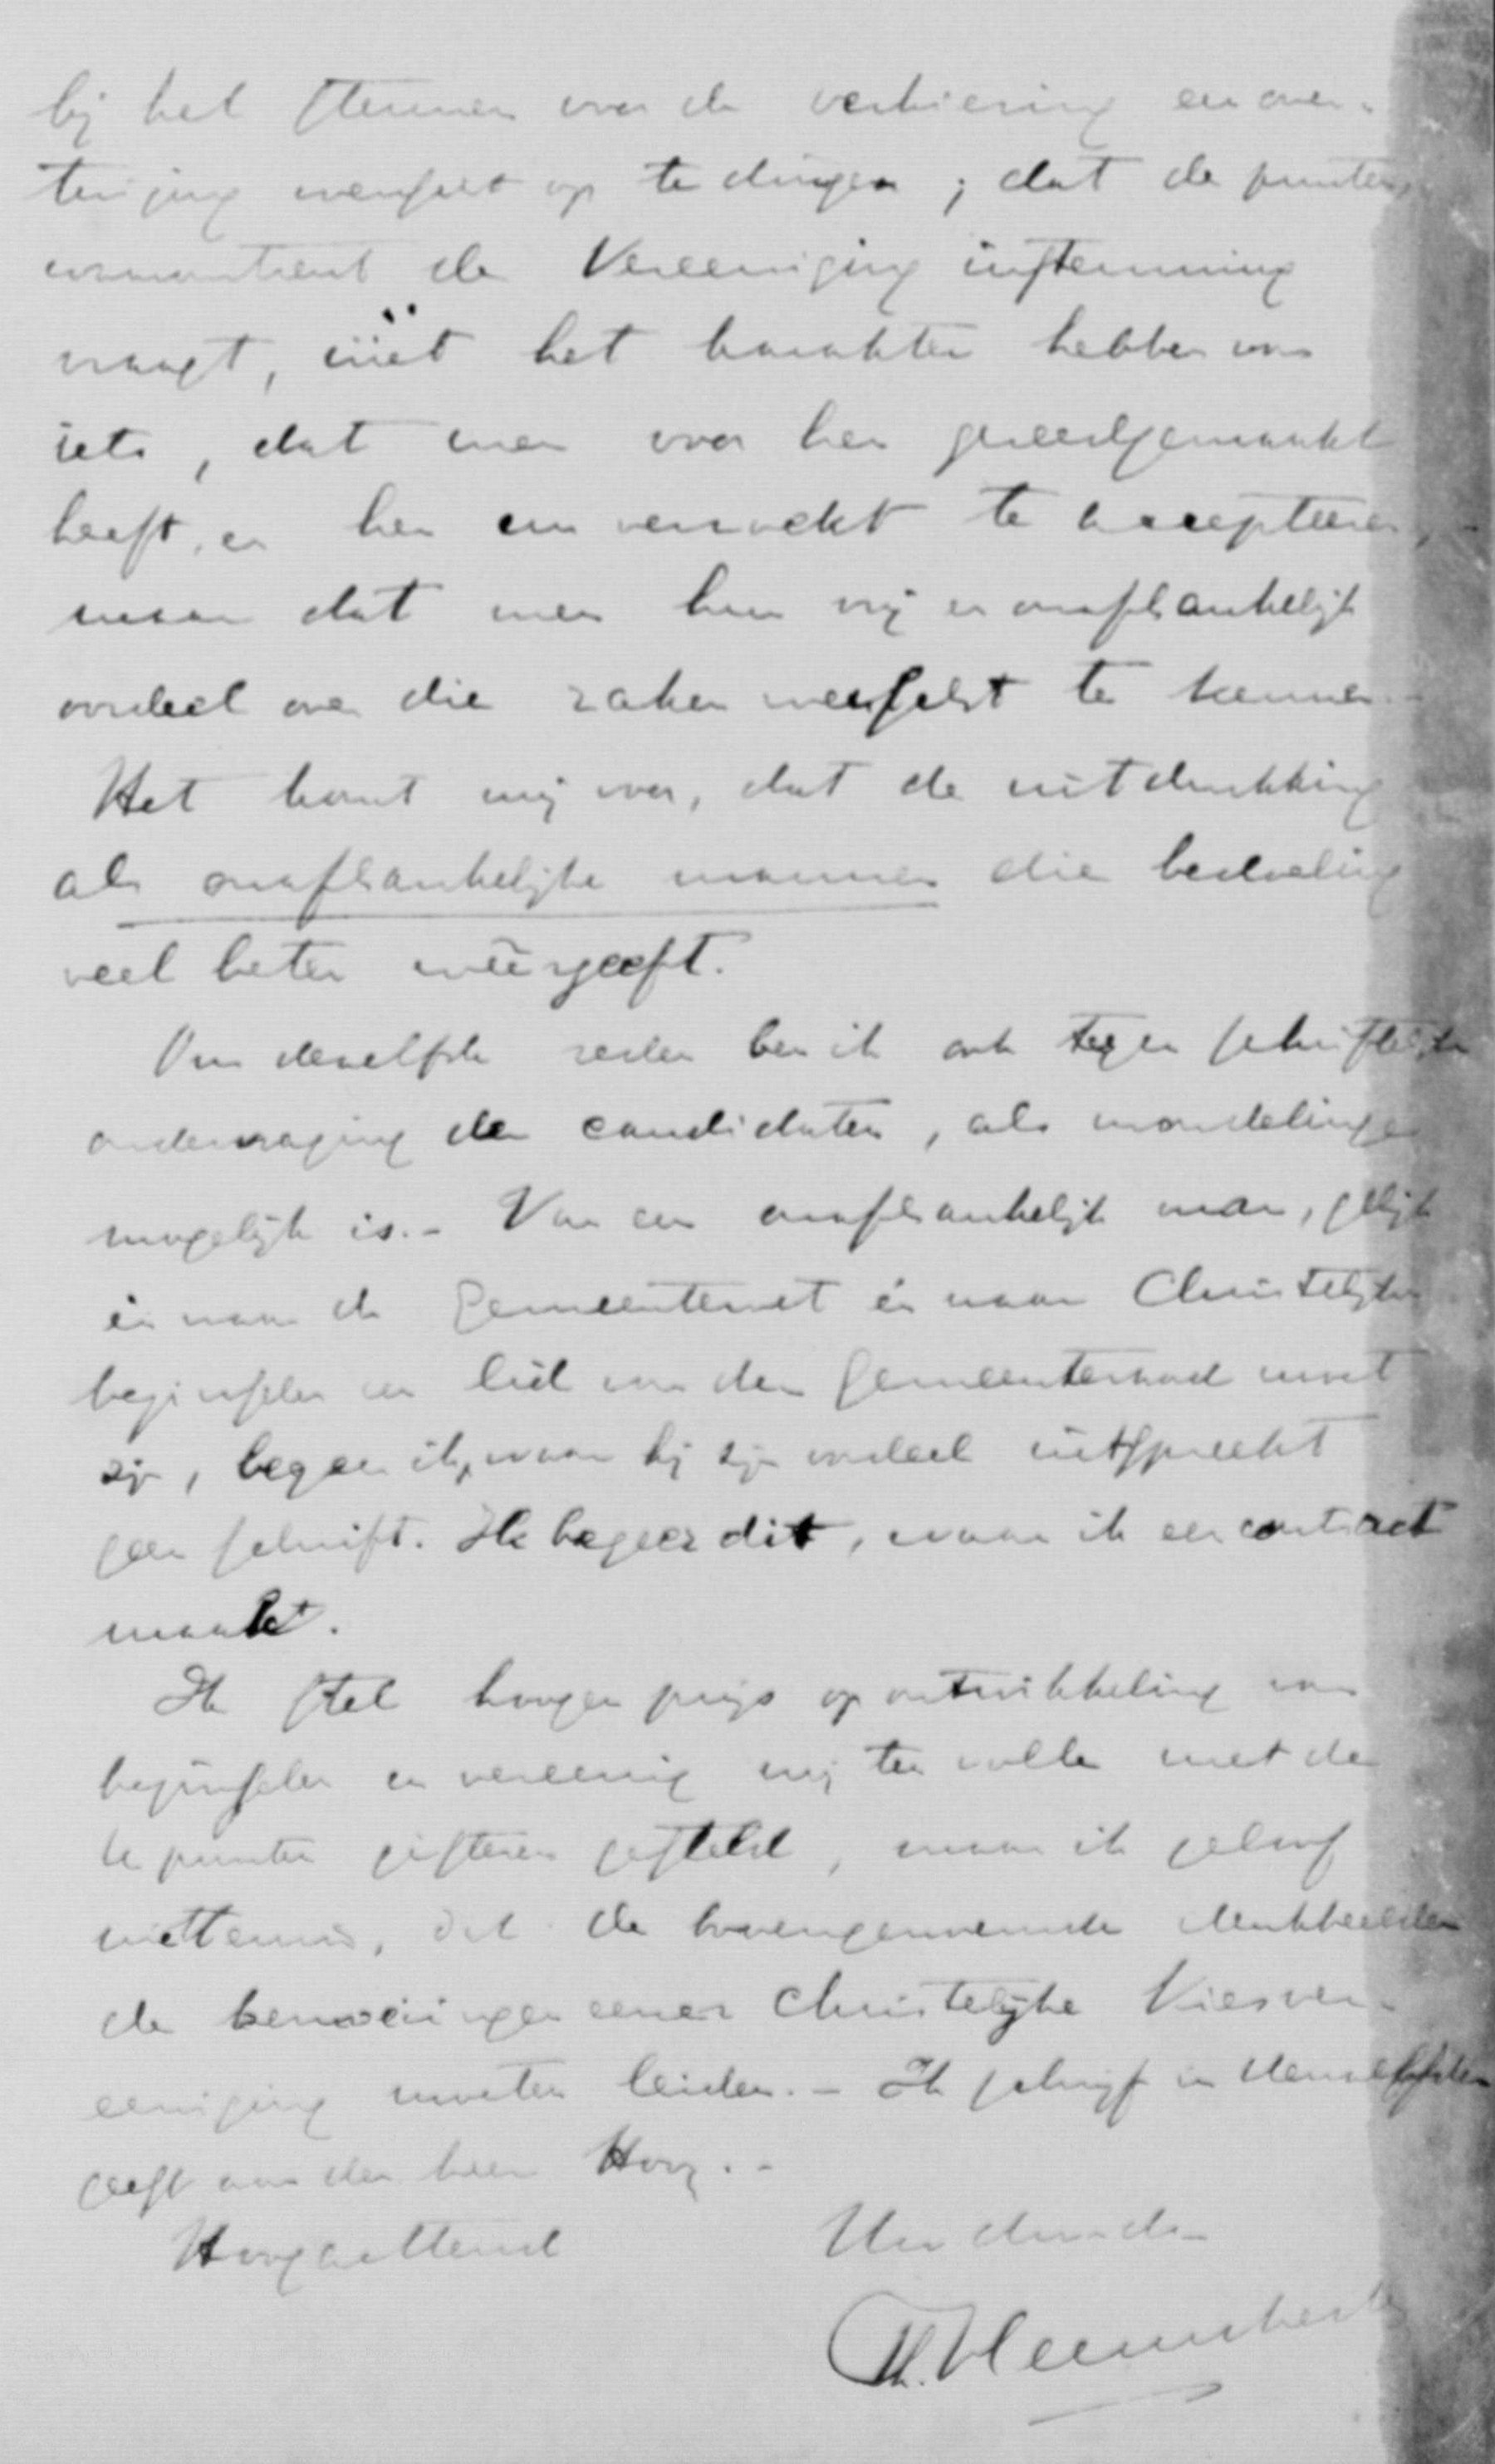 bij het stemmen voor de verkiezing en over-
tuiging wenscht op te dringen; dat de punten,
waaromtrent de Vereeniging instemming
vraagt, niet het karakter hebben van
iets, dat men voor hen gereedgemaakt
heeft, en hen nu verzoekt te accepteeren,
maar dat men hun vrij en onafhankelijk
oordeel over die zaken wenscht te kennen.
Het komt mij voor, dat de uitdrukking
als onafhankelijke mannen die bedoeling
veel beter weergeeft.
Om dezelfde reden ben ik ook tegen schriftelijke
ondervraging der candidaten, als mondelinge
mogelijk is. - Van een onafhankelijk man, gelijk
én naar de Gemeentewet én naar Christelijke
beginselen een lid van den gemeenteraad moet
zijn, begeer ik, waar hij zijn oordeel uitspreekt
geen schrift. Ik begeer dit, waar ik een contract
maakt.
Ik stel hoogen prijs op ontwikkeling van
beginselen en vereenig mij ten volle met de
punten gisteren gesteld, maar ik geloof
niettemin, dat de bovengenoemde denkbeelden
de bemoeiingen eener Christelijke Kiesver-
eeniging moeten leiden. - Ik schrijf in denzelfden
geest aan den heer Hovy. -
Hoogachtend
Uw dw. dr.
Th. Heemskerk